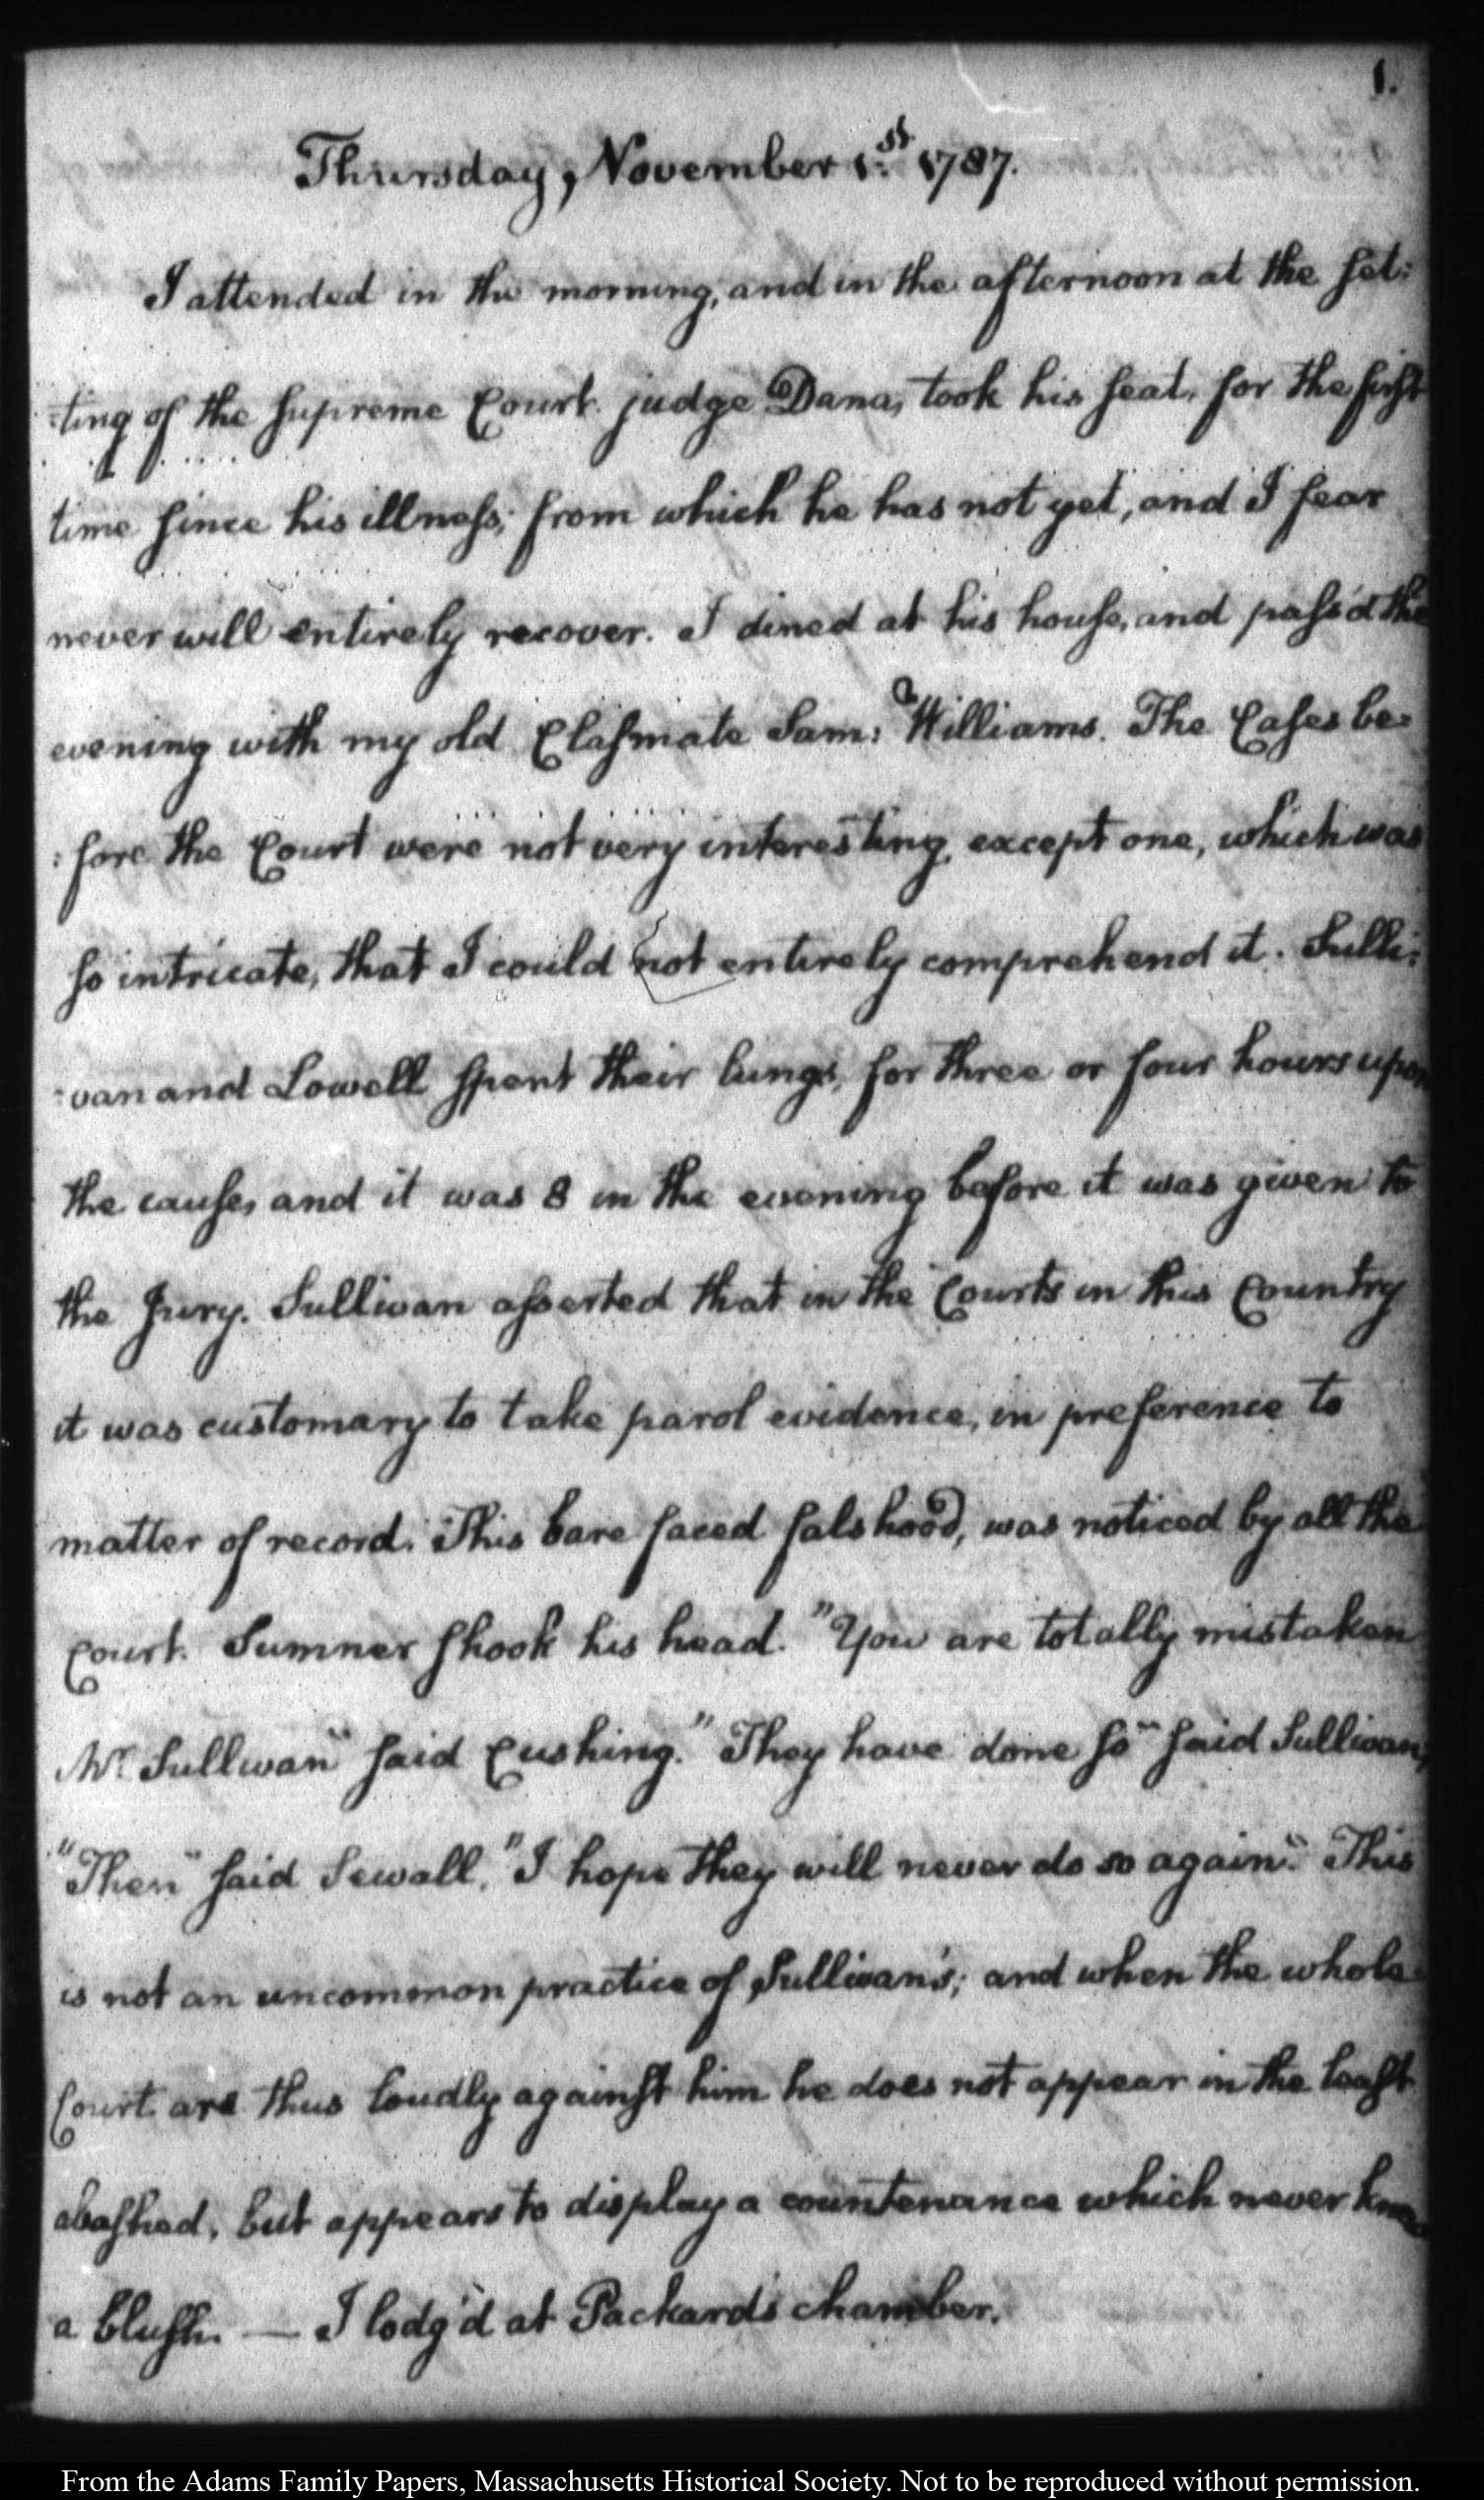 1.
Thursday, November 1st. 1787.
I attended in the morning, and in the afternoon at the set:
:ting of the supreme Court. judge Dana, took his seat, for the first
time since his illness; from which he has not yet, and I fear
never will entirely recover. I dined at his house, and pass'd the
evening with my old Classmate Sam: Williams. The Cases be:
:fore the Court were not very interesting, except one, which was
so intricate, that I could not entirely comprehend it. Sulli:
:van and Lowell spent their lungs, for three or four hours upon
the cause, and it was 8 in the evening before it was given to
the Jury. Sullivan asserted that in the Courts in this Country
it was customary to take parol evidence, in preference to
matter of record. This bare faced falshood, was noticed by all the
Court. Sumner shook his head. "You are totally mistaken
Mr. Sullivan" said Cushing. "They have done so" said Sullivan,
"Then" said Sewall, "I hope they will never do so again." This
is not an uncommon practice of Sullivan's; and when the whole
Court are thus loudly against him he does not appear in the least
abashed, but appears to display a countenance which never knew
a blush. — I lodg'd at Packard's chamber.
From the Adams Family Papers, Massachusetts Historical Society. Not to be reproduced without permission.